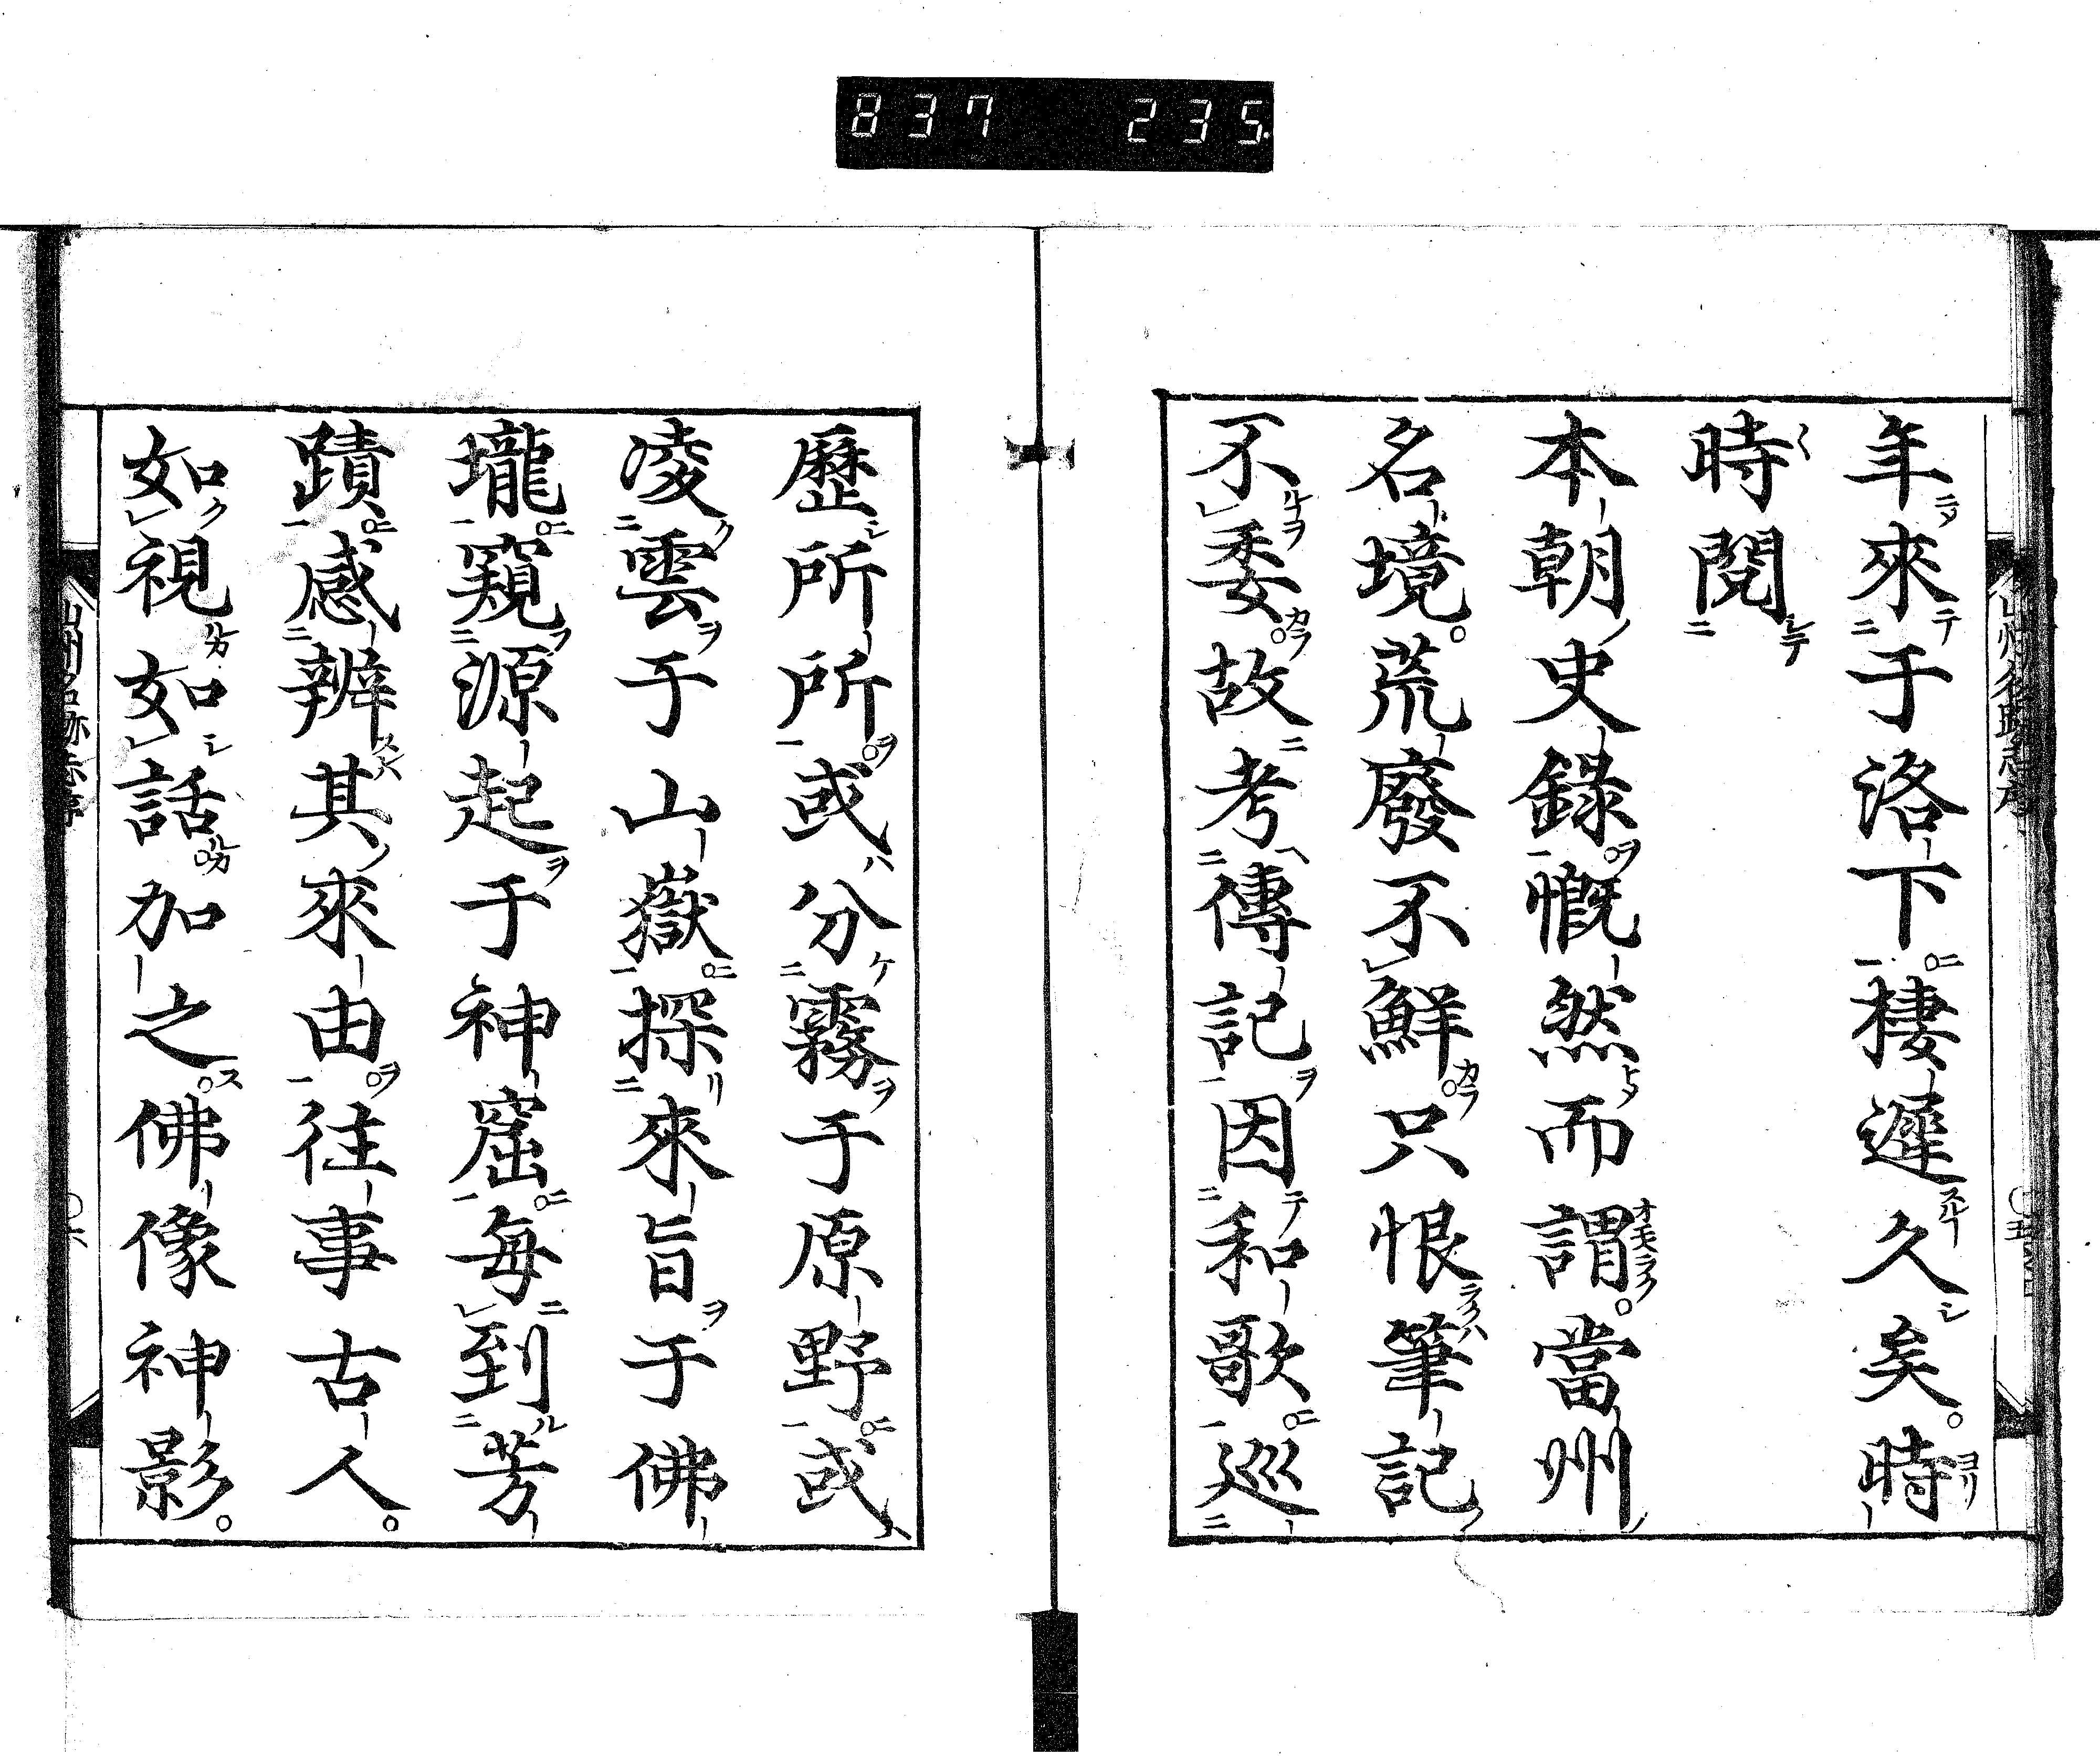 837 235
年來于洛下棲遲久矣時
時閱
本朝史錄慨然而謂當州
名境荒廢不鮮只恨筆記
不委故考傳記因和歌巡
歷所所或分霧于原野或
凌雲于山嶽探來旨于佛
壠窺源起于神窟每到芳
蹟感辨其來由往事古人
如視如話加之佛像神影